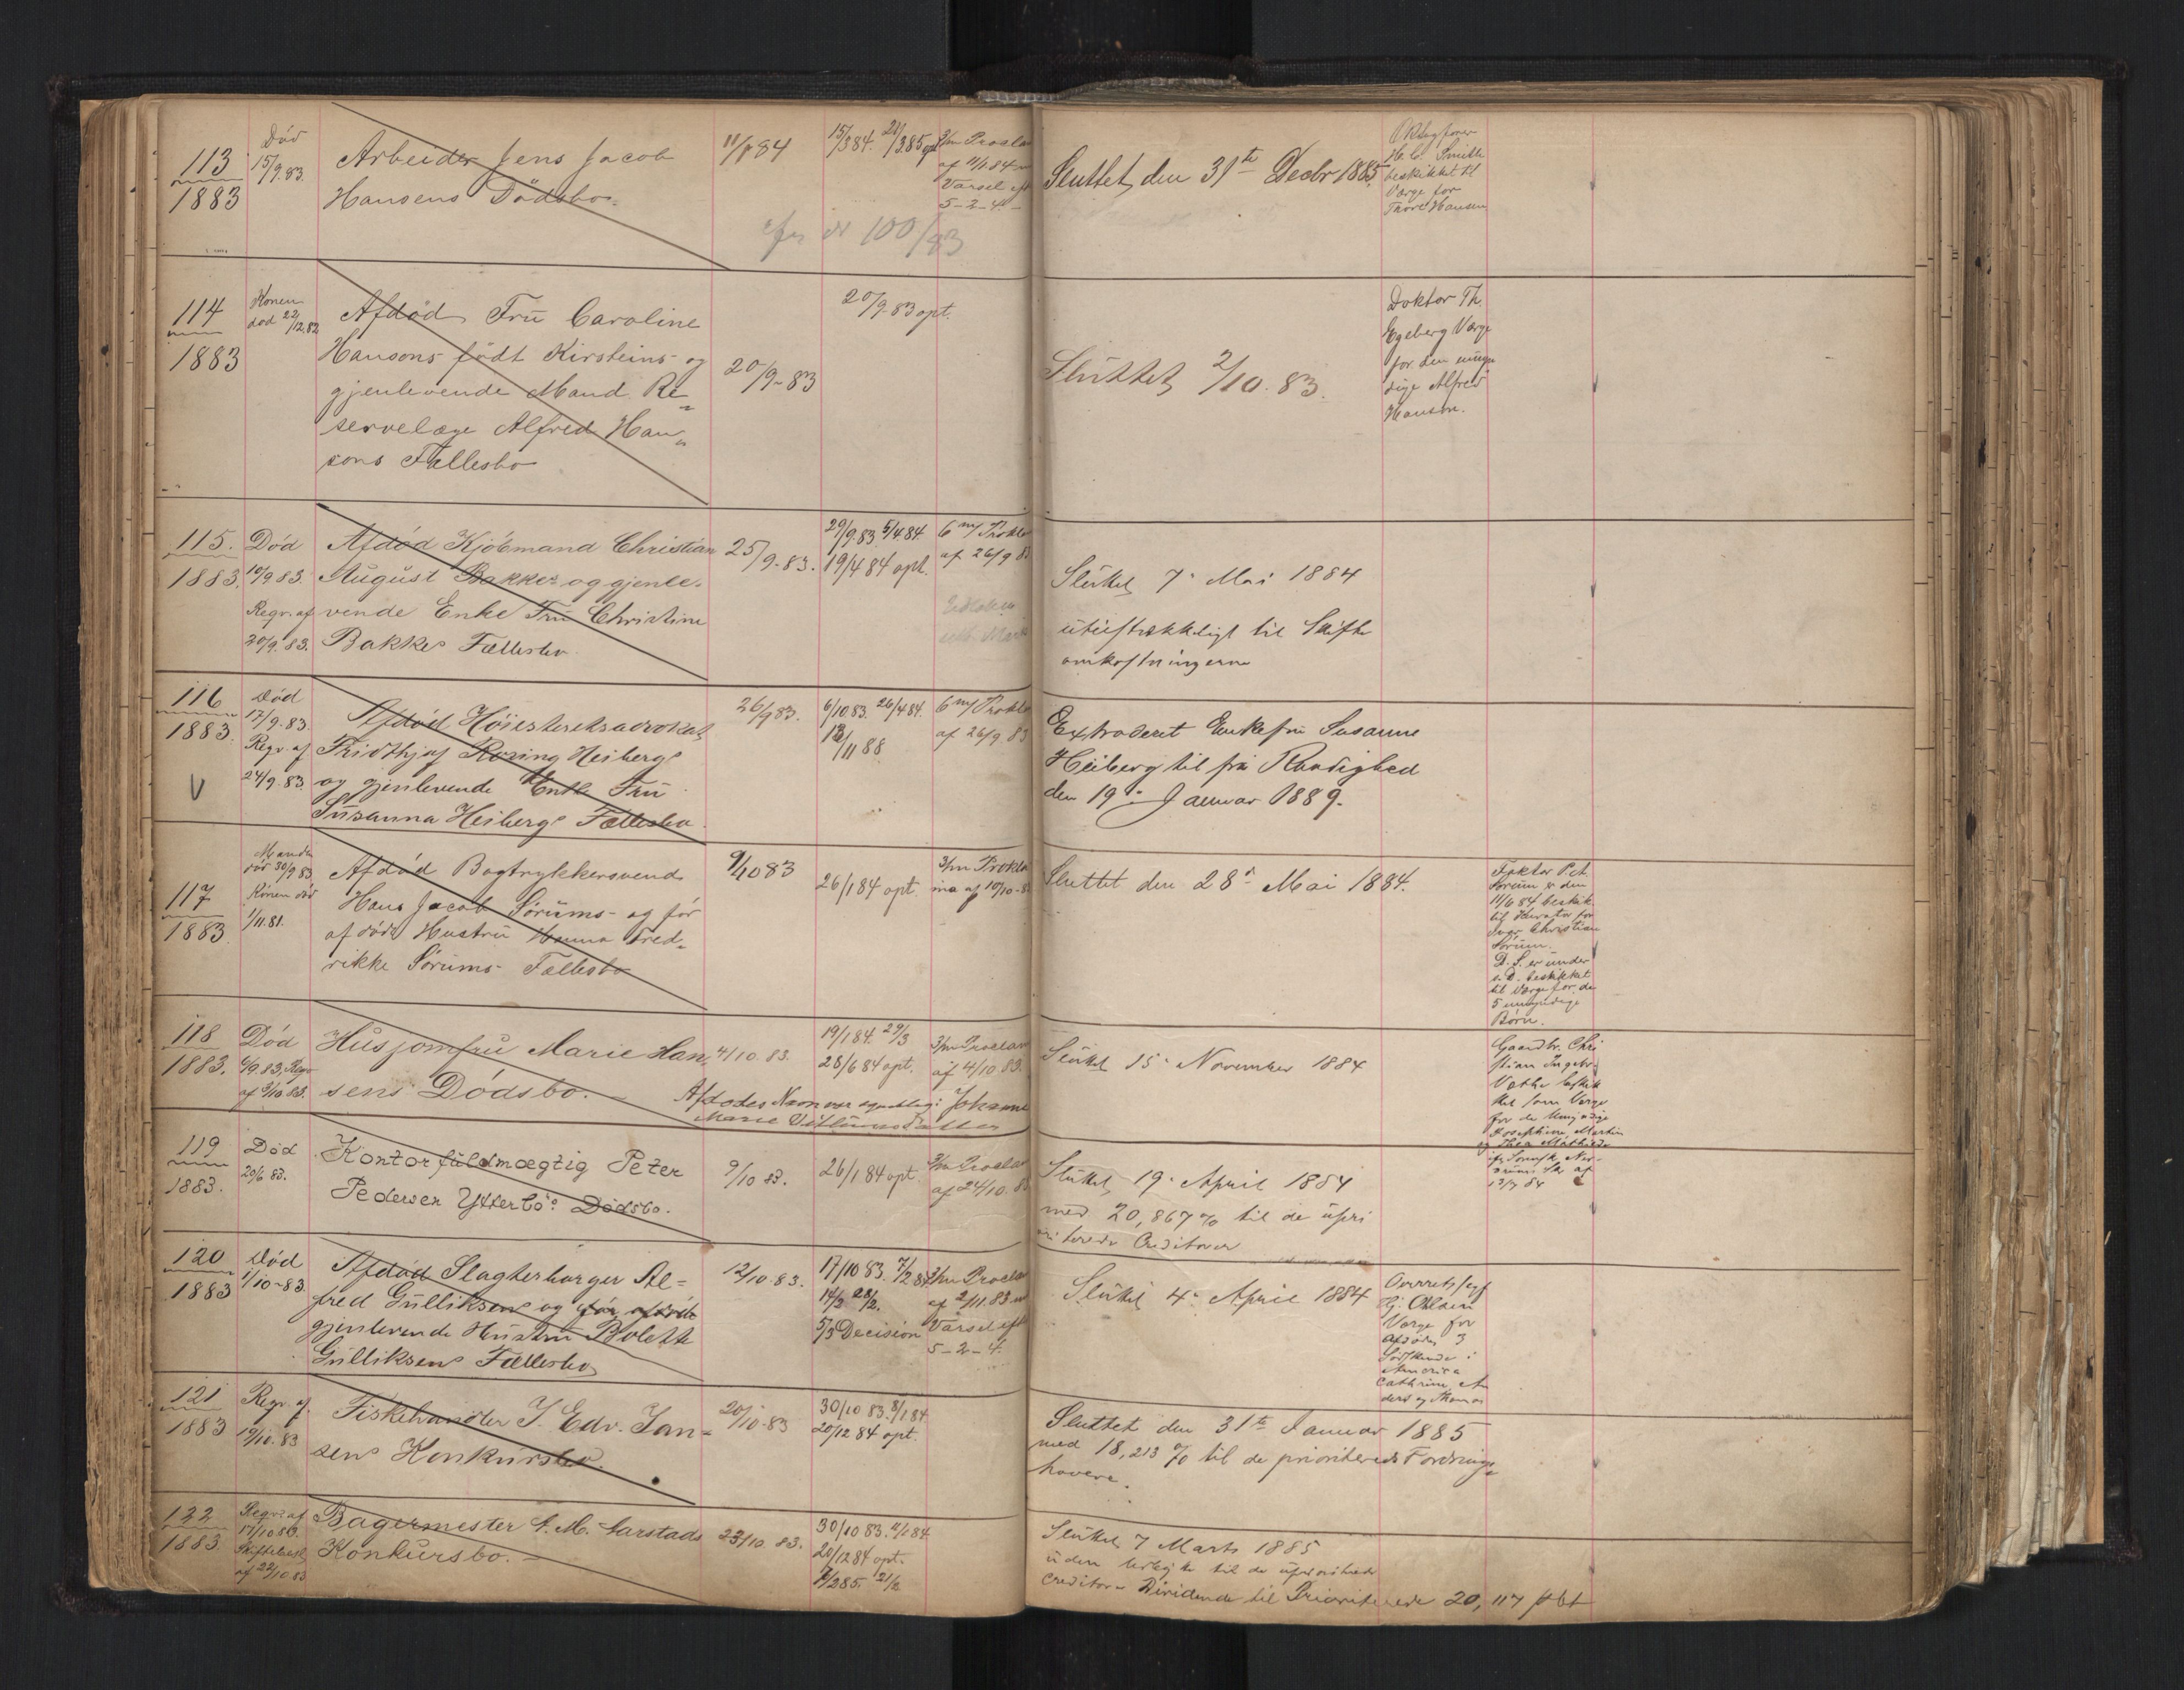 113
1883
Död
15/9.83.
Arbeider Jens Jacob
Hansens Dödsbo.
11/1 84
15/3 84. 21/3.85 opt
3/m Proclam
af 11/1.84
Varsel eft
5-2-4.
Sluttet den 31te Decbr 1885
H.C. Smith
beskikket til
Værge for
Thora Hansen
100/83
114
1883
Konen
död 22/12.82
Afdöd Frü Caroline
Hansons födt Kirsteins og
gjenlevende Mand Re-
servelæge Alfred Han-
sons Fællesbo
20/9-83
20/9.83 opt.
Slüttet 2/10.83.
Doktor Th.
Egeberg Værge
for den umyn
dige Alfred
Hanson.
115.
1883.
Död
10/9 83.
Regv. af
20/9.83.
Afdöd Kjöbmand Christian
August Bakkes og gjenle-
vende Enke Frü Christine
Bakkes Fællesbo.
25/9-83.
29/9.83. 5/4 84.
19/4 84 opt.
6 m/ Prokla
af 26/9 83
Slüttet 7. Mai 1884
ütilstrækkeligt til Skifte
omkostningerne
116
1883.
V
Död
17/9.83.
Regv. af
24/9.83.
Afdöd Höiesteretsadvokat
Fridthjof Rosing Heibergs
og gjenlevende Enke Frü
Süsanna Heibergs Fællesbo.
26/9 83.
6/10.83. 26/4 84.
12/11 88
6 m/ Prokla
af 26/9.83
Extraderet Enkefrü Susanne
Heiberg til fri Raadighed
den 19de Januar 1889.
117
1883
Manden
död 30/9 83.
Konen död
1/11.81.
Afdöd Bogtrykkersvend
Hans Jacob Sörüms- og för
afdöde Hustrü Hanna Fred-
rikke Sörüms- Fællesbo
9/10 83
26/1 84 opt.
3/m Prokla
ma af 10/10-83
Sluttet den 28de Mai 1884.
Faktor Pet.
Sörüm er den
11/6 84 beskik.
til Kurator for
Ivar Christian
Sörüm.
D. S. er under
s. D. beskikket
til Værge for de
5 umyndige
Börn.
118
1883.
Död
4/9.83. Regv
af 3/10 83.
Hüsjomfrü Marie Han-
sens Dödsbo.
Afdödes Navn var egentlig: Johanne
Marie
4/10.83.
19/1 84. 29/3
28/6 84 opt.
3/m Proclam
af 4/10 83.
Slüttet 15. November 1884
Gaardbr. Chri
stian Ingebr.
Vathe beskik
ket som Værge
for de Umyndige
Josephine, Martin
og Thea Mathilde
12/7 84
119
1883.
Död
20/6 83.
Kontorfüldmægtig Peter
Pedersen Ytterbös Dödsbo.
9/10 83.
26/1 84 opt.
3/m Proclam
af 24/10.83
Slüttet 19. April 1884
med 20,867% til de üpri
oriterede Creditorer
120
1883
Död
1/10-83.
Afdöd Slagterborger Al-
fred Gülliksens og för afdöde
gjenlevende Hüstrü Bolette
Gülliksens Fællesbo
12/10.83.
17/10 83. 7/2 84
14/2 28/2.
5/3 Decision
3/m Proclam
af 2/11.83
Varsel eft
5-2-4.
Slüttet 4. April 1884
Hj. Ohlsen
Værge for
Afdödes 3
Södskende i
America
Cathrine, An
ders og Thomas
121
1883
Regv. af
19/10.83
Fiskehandler J. Edv. Jan-
sens Konkürsbo.
20/10-83
30/10 83. 8/1 84
20/12 84 opt.
Sluttet den 31te Januar 1885
med 18,213 % til de prioriterede Fordrings-
havere.
122
1883
Regv. af
17/10 83.
Skiftebesl.
af 22/10 83
Bagermester S. M. Sarstads
Konkürsbo.
23/10.83.
30/10 83. 4/1 84.
20/12 84 opt.
7/2 85. 21/2
Slüttet 7 Marts 1885
üden Udlæg til de üprioriterede
Creditorer Dividende til Prioriterede 20,117 pCt